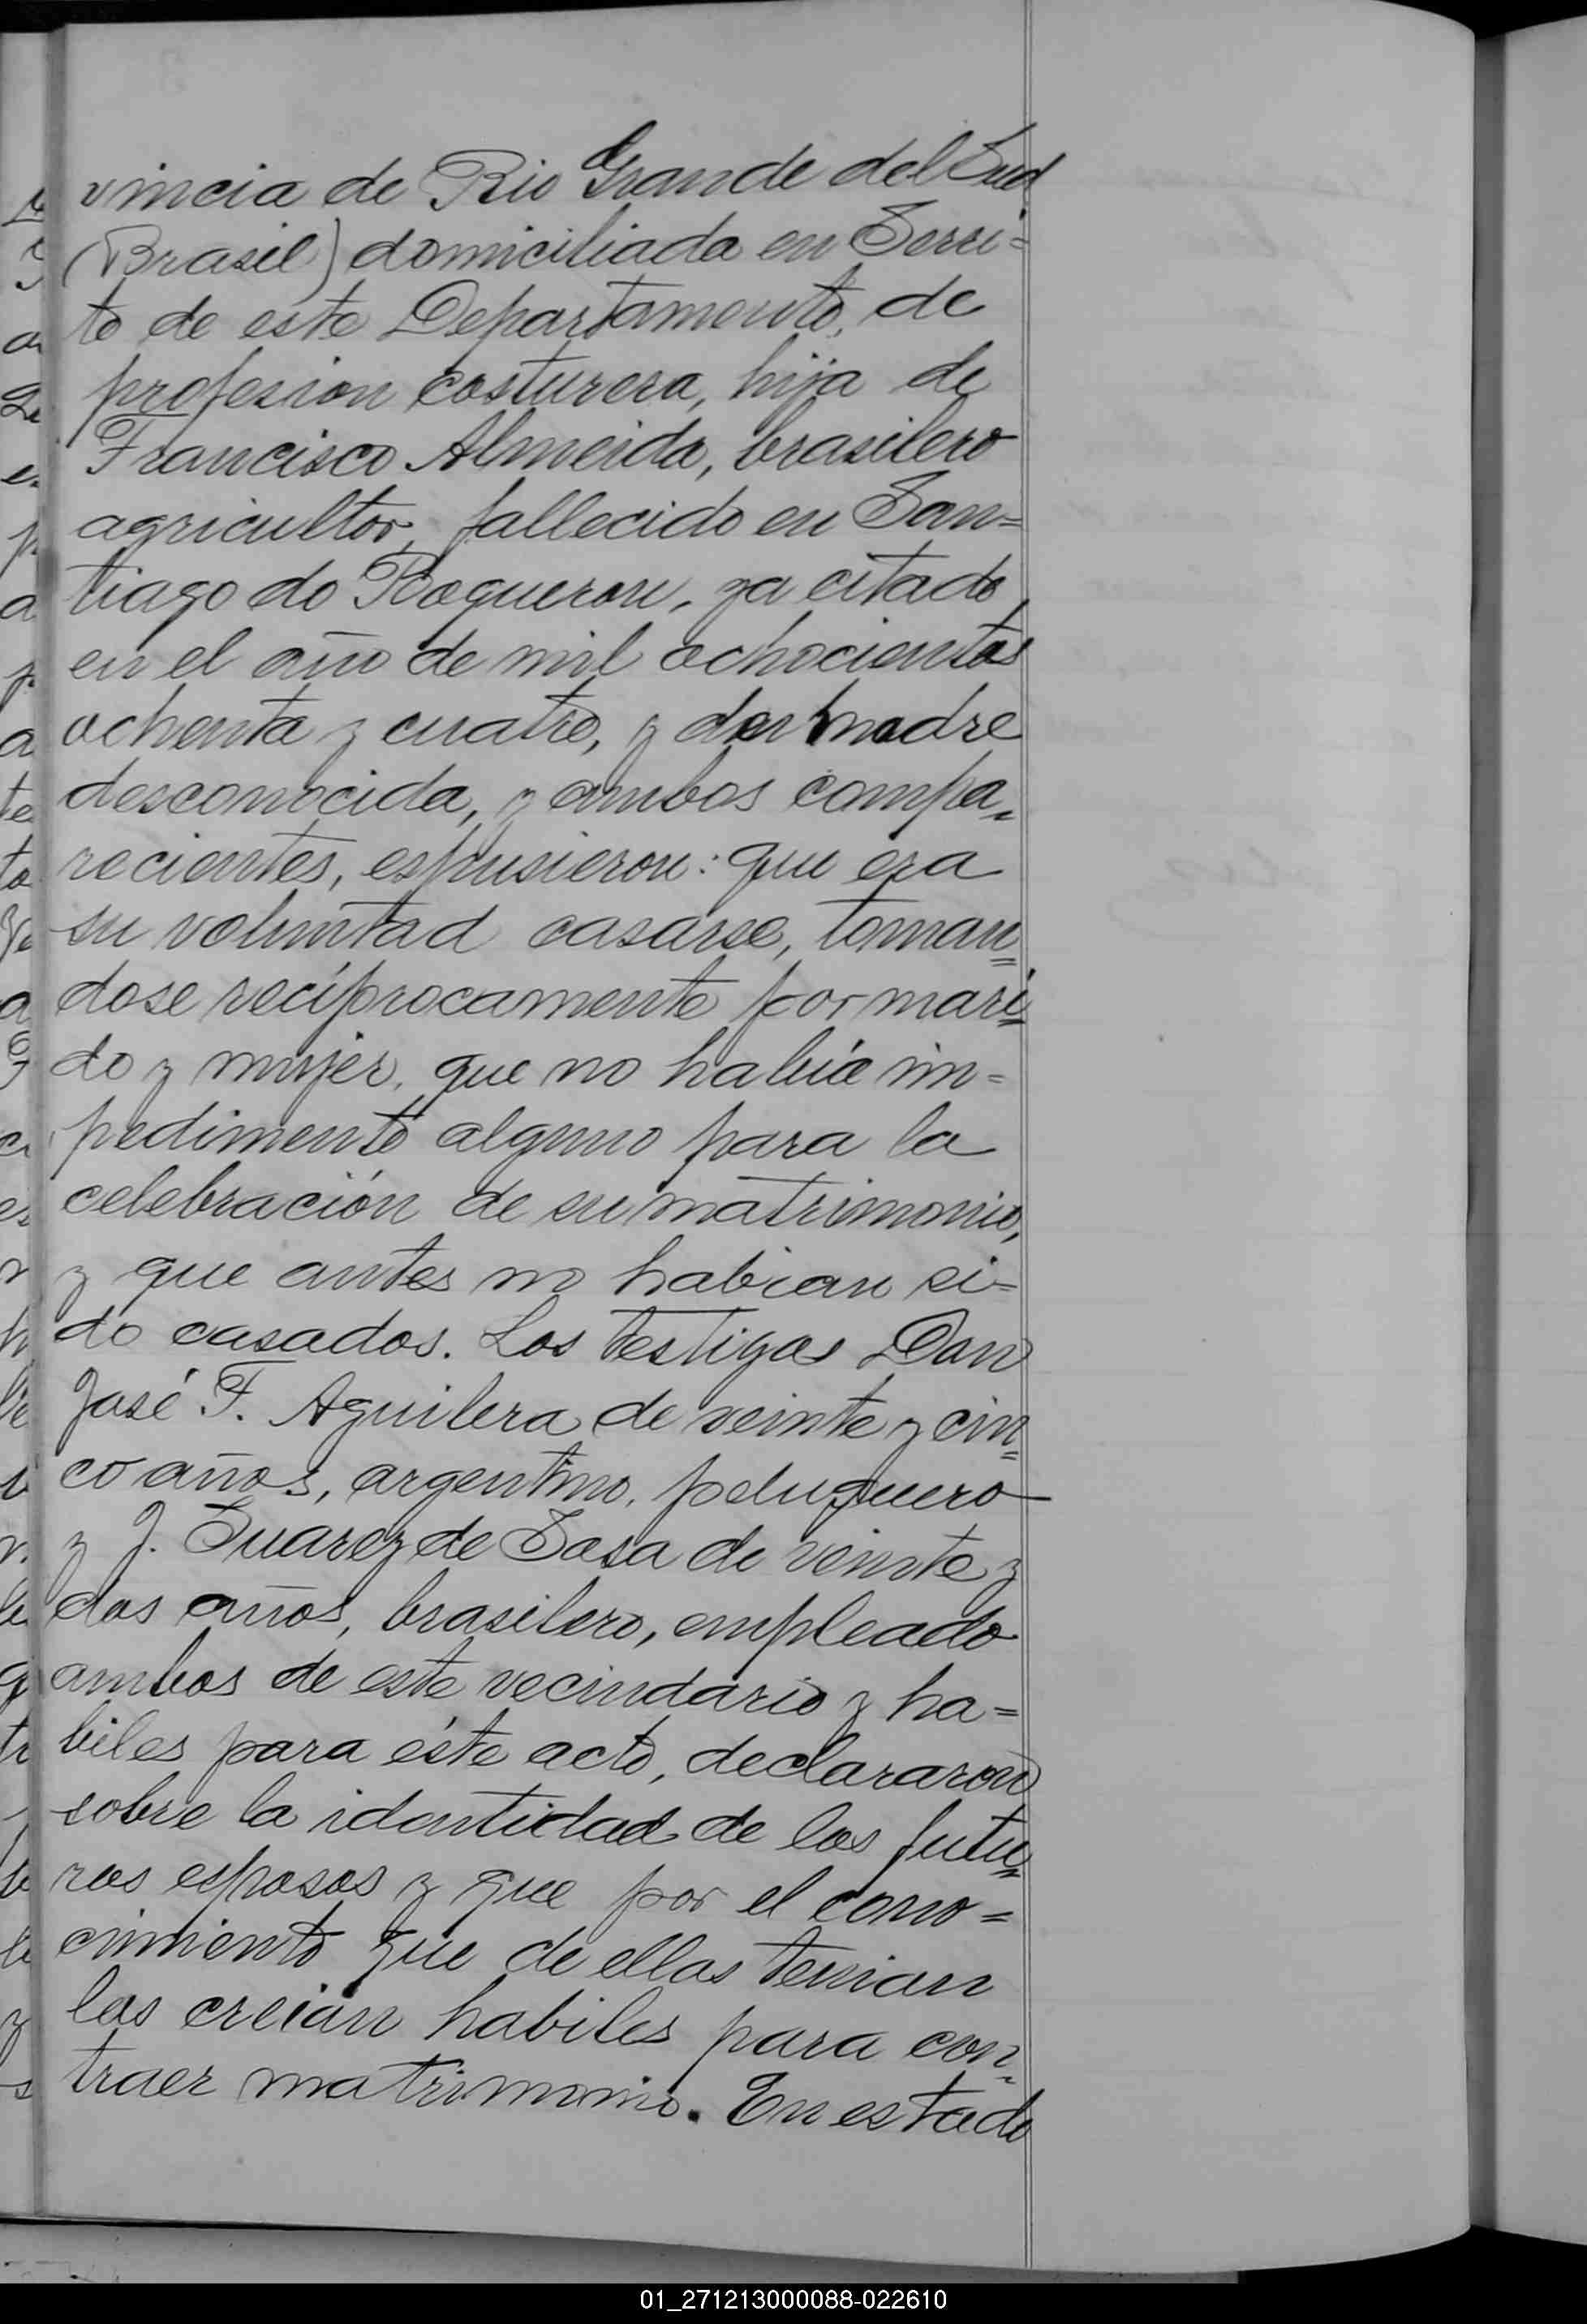 vincia de Rio Grande del Sud
(Brasil) domiciliada en Serri=
to de este Departamento, de
profesion costurera, hija de
Francisco Almeida, brasilero
agricultor, fallecido en San=
tiago do Boqueron, ya citado,
en el año de mil ochocientos
ochenta y cuatro, y de madre
desconocida, y ambos compa=
recientes, espusieron: que era
su voluntad casarse, toman=
dose recíprocamente por mari=
do y mujer, que no habia im=
pedimento alguno para la
celebración de su matrimonio,
y que antes no habian si=
do casados. Los testigos Don
José F. Aguilera de veinte y cin=
co años, argentino, peluquero
y J. Suarez de Sosa de veinte y
dos años, brasilero, empleado
ambos de este vecindario y ha=
biles para éste acto, declararon
sobre la identidad de los futu=
ros esposos y que por el cono=
cimiento que de ellos tenian
los creian habiles para con=
traer matrimonio. En estado
01_271213000088-022610